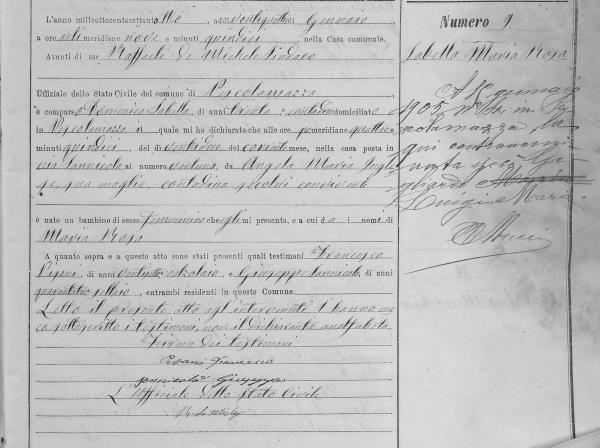 L'anno millottocentottantotto, addì ventiquattro di Gennaio
a ore anti meridiane nove e minuti quindici, nella Casa comunale.
Avanti di me Raffaele De Michele Sindaco
Uffiziale dello Stato Civile del comune di Pescolamazza
è comparso Domenico Sabetta, di anni trenta, contadino domiciliato
in Pescolamazza, il quale mi ha dichiarato che alle ore pomeridiane quattro e
minuti quindici, del dì ventidue del corrente mese, nella casa posta in
via Sannicola al numero ventuno, da Angela Maria
sua moglie, contadina, seco lui convivente
è nato un bambino di sesso femminino che egli mi presenta, e a cui dà i nomi di
Maria Rosa
A quanto sopra e a questo atto sono stati presenti quali testimoni Francesco
Pisani, di anni ventotto calzolaio, e Giuseppe Iannicola, di anni
quarantotto, sellaio, entrambi residenti in questo Comune.
Letto il presente atto agli intervenuti l'hanno me
co sottoscritto i testimoni, non il dichiarante analfabeta
Firme dei testimoni
Pisani Francesco
Iannicola Giuseppe
L'Officiale dello Stato Civile
Numero 9
Sabetta Maria Rosa
gennaio
1905 in Pe
scolamazza la
qui contronomi
nata sposò Ga
gliarde
Luigi Maria